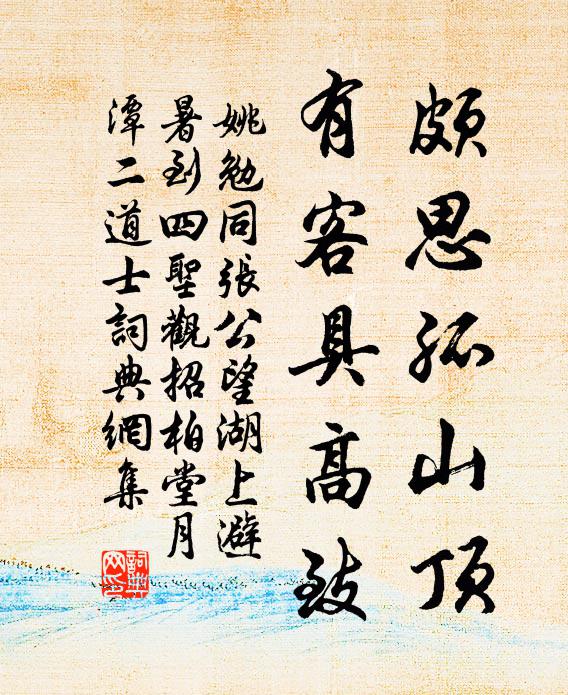 頗思孤山頂
有客具高致
姚勉同張公望湖上避
暑到四聖觀招柏堂月
潭二道士詞典網集
詞典网印